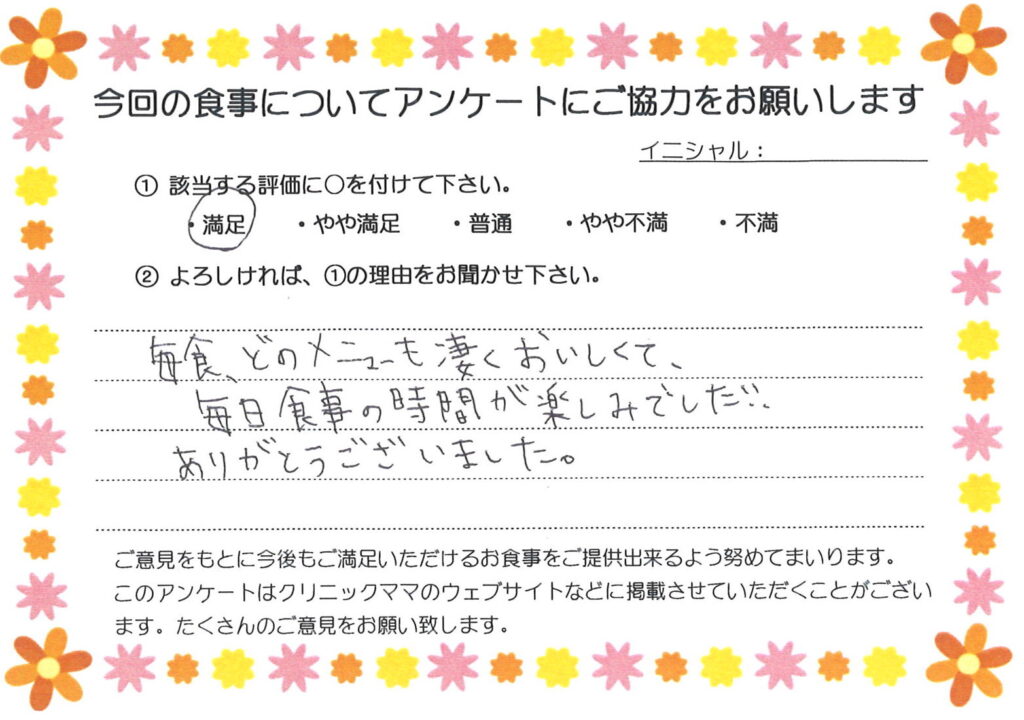 今回の食事についてアンケートにご協力をお願いします
イニシャル：
① 該当する評価に○を付けて下さい。
・満足 ・やや満足 ・普通 ・やや不満 ・不満
② よろしければ、①の理由をお聞かせ下さい。
毎食、どのメニューも凄くおいしくて、
毎日食事の時間が楽しみでした!!
ありがとうございました。
ご意見をもとに今後もご満足いただけるお食事をご提供出来るよう努めてまいります。
このアンケートはクリニックママのウェブサイトなどに掲載させていただくことがござい
ます。たくさんのご意見をお願い致します。